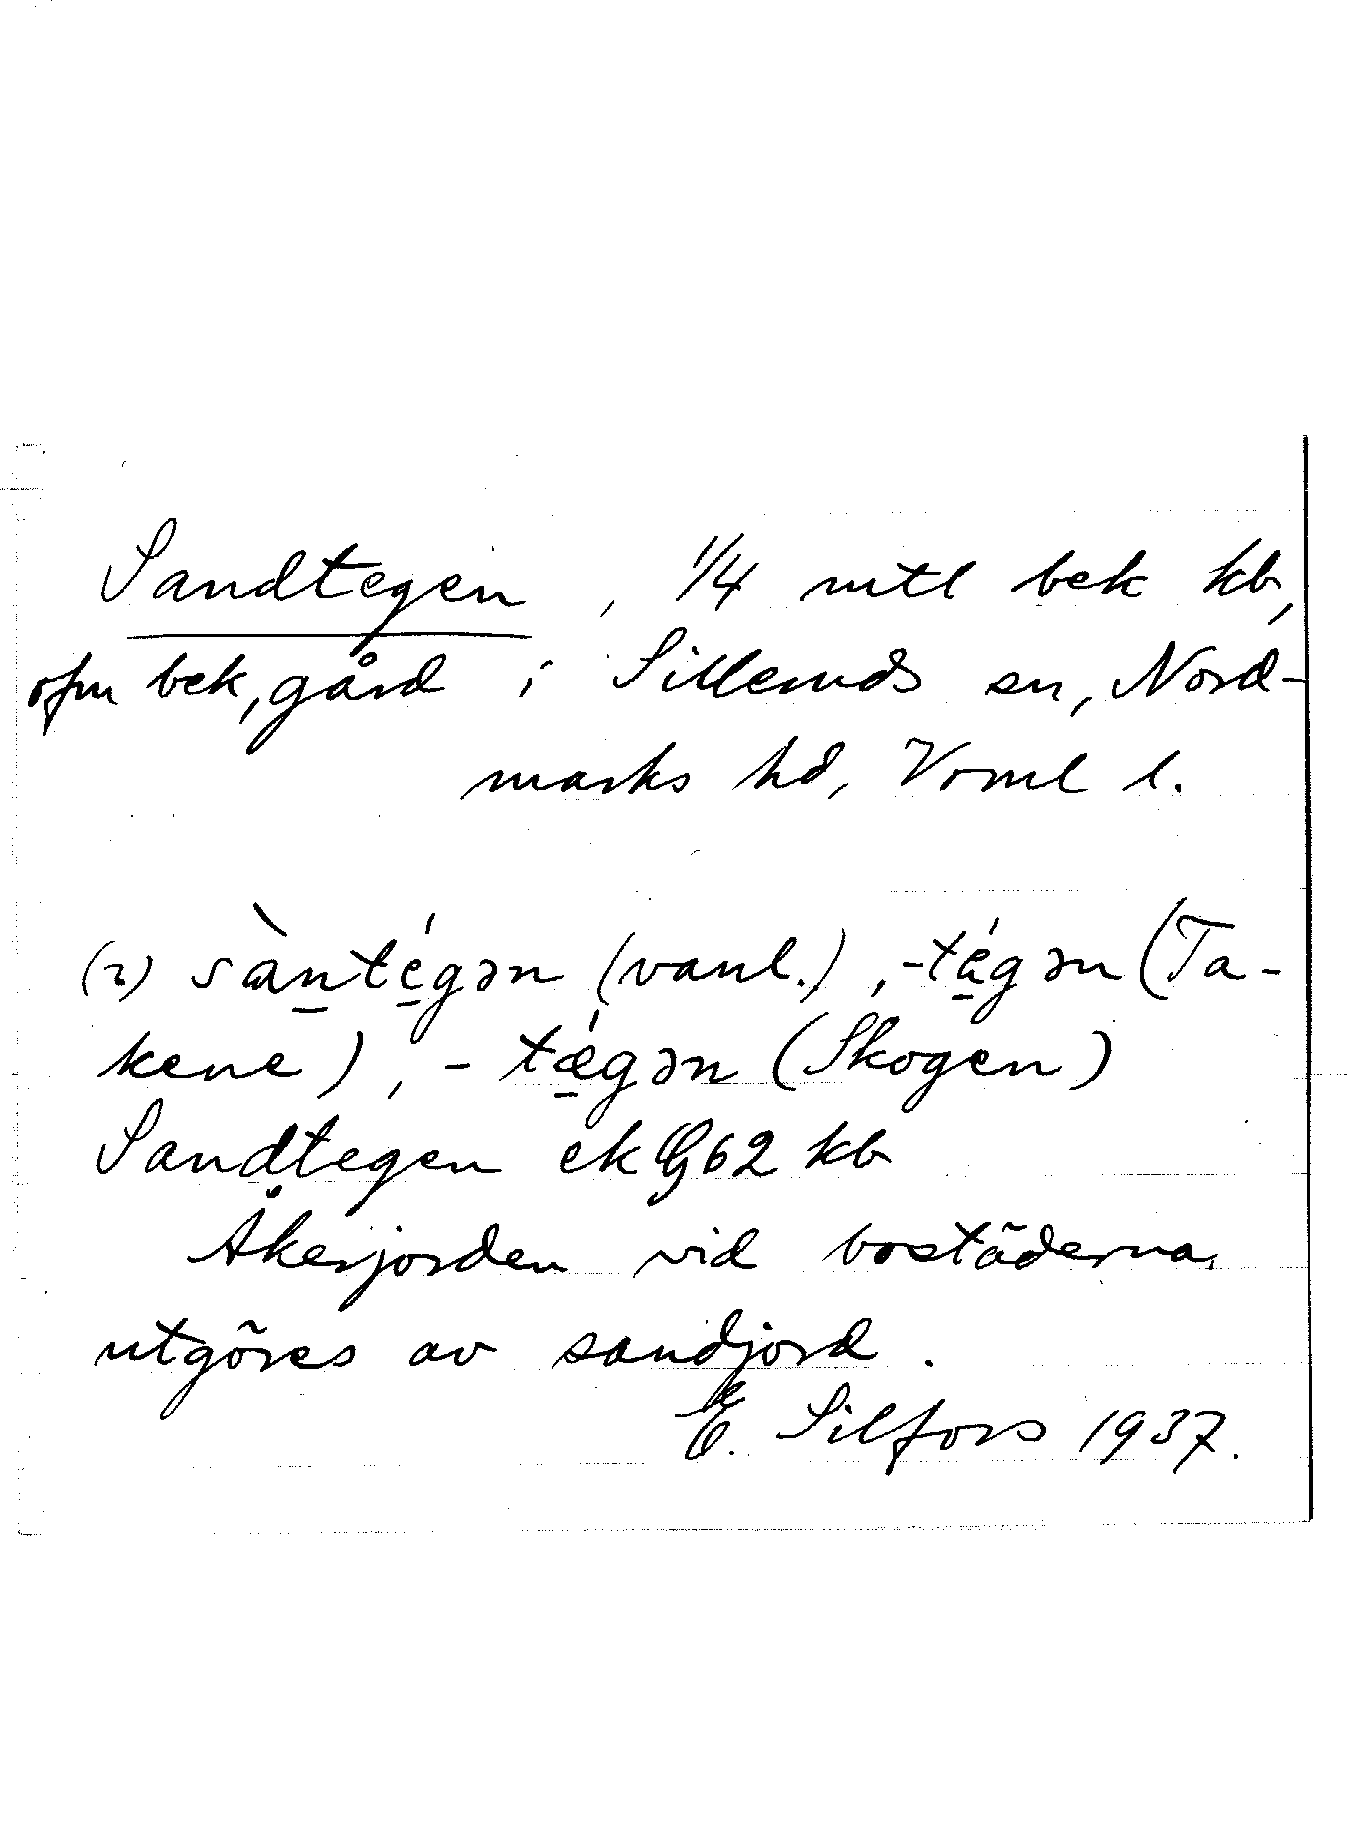 Sandtegen, 1/4 mtl bek kb,
ofm bek, gård i Silleruds sn, Nord-
marks hd, Vrml l.
(2) sàn̲té̲gən (vanl.), -tá̲gən (Ta-
kene), -tǽ̲gən (Skogen)
Sandtegen ek G62 kb
Åkerjorden vid bostäderna
utgöres av sandjord.
E. Silfors 1937.